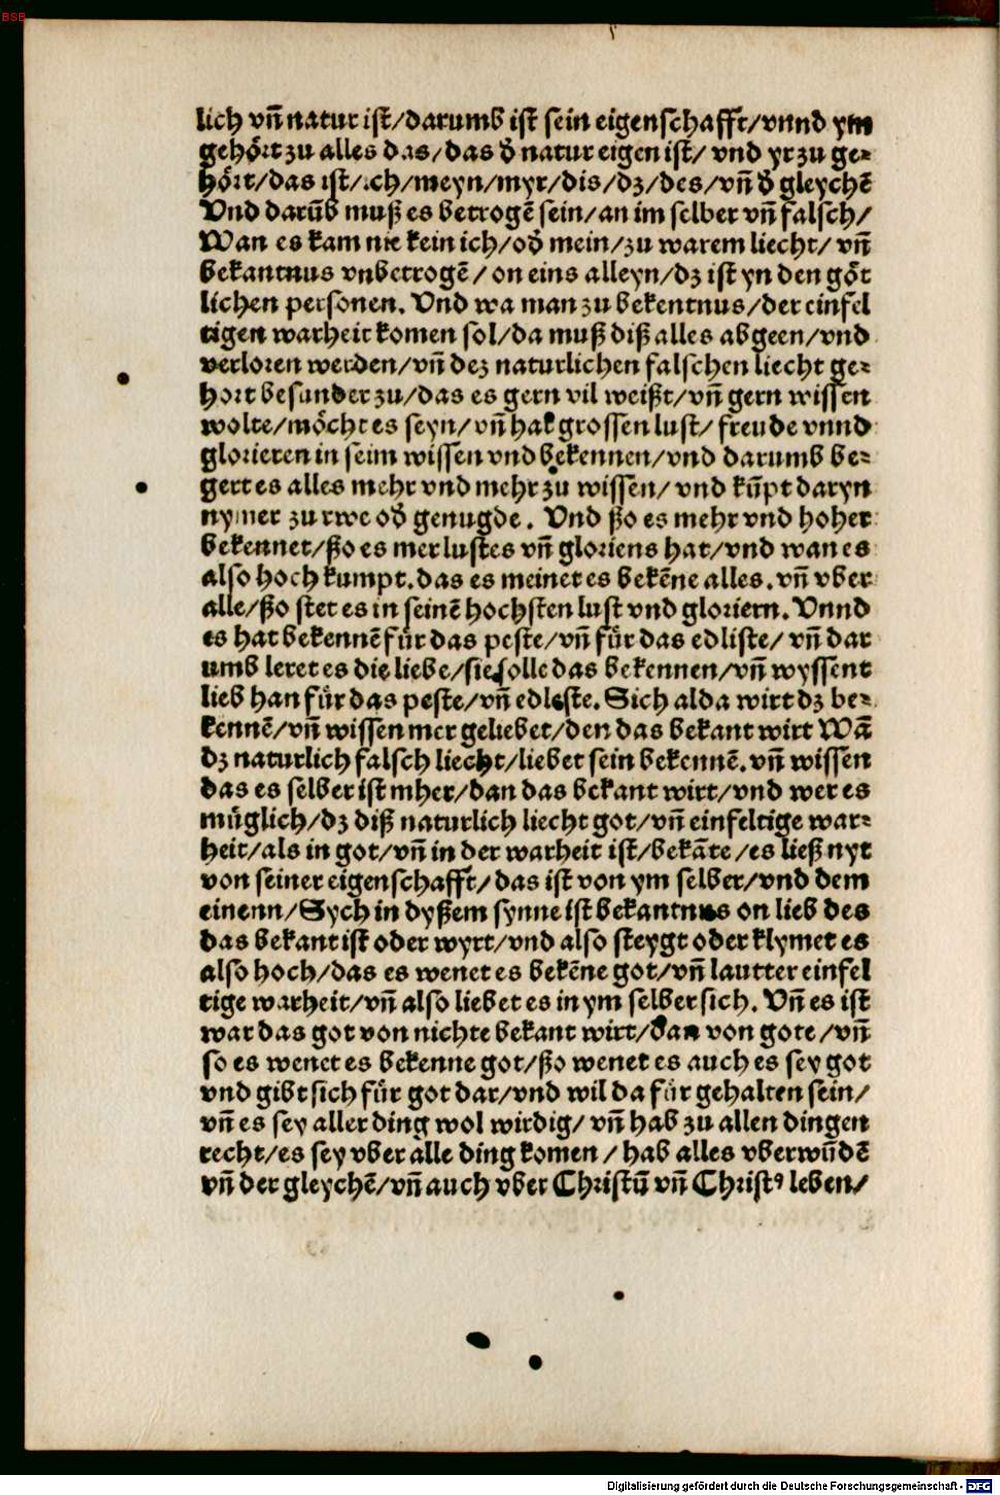 BSB
lich vn̄ natur ist/darumb ist sein eigenschafft/vnnd ym
gehört zu alles das/das d̄ natur eigen ist/ vnd yr zu ge⸗
hört/das ist/ich/meyn/myr/dis/dz/des/vn̄ d̄ gleychē
Vnd darūb muß es betrogē sein/an im selber vn̄ falsch/
Wan es kam nie kein ich/od̄ mein/zu warem liecht/ vn̄
bekantnus vnbetrogē/ on eins alleyn/dz ist yn den göt
lichen personen. Vnd wa man zu bekentnus/der einfel
tigen warheit komen sol/da muß diß alles abgeen/vnd
verloren werden/vn̄ dez naturlichen falschen liecht ge⸗
hort besunder zu/das es gern vil weißt/vn̄ gern wissen
wolte/möcht es seyn/vn̄ hat grossen lust/ freude vnnd
glorieren in seim wissen vnd bekennen/vnd darumb be⸗
gert es alles mehr vnd mehr zu wissen/ vnd kūpt daryn
nymer zu rwe od̄ genugde. Vnd ßo es mehr vnd hoher
bekennet/ßo es mer lustes vn̄ gloriens hat/vnd wan es
also hoch kumpt.das es meinet es bekēne alles.vn̄ vber
alle/ßo stet es in seinē hochsten lust vnd gloriern. Vnnd
es hat bekennē für das peste/vn̄ für das edliste/ vn̄ dar
umb leret es die liebe/sie solle das bekennen/vn̄ wyssent
lieb han für das peste/vn̄ edleste. Sich alda wirt dz be⸗
kennē/vn̄ wissen mer geliebet/den das bekant wirt Wā
dz naturlich falsch liecht/liebet sein bekennē.vn̄ wissen
das es selber ist mher/dan das bekant wirt/vnd wer es
müglich/dz diß naturlich liecht got/vn̄ einfeltige war⸗
heit/als in got/vn̄ in der warheit ist/bekāte/es ließ nyt
von seiner eigenschafft/das ist von ym selber/vnd dem
einenn/Sych in dyßem synne ist bekantnus on lieb des
das bekant ist oder wyrt/vnd also steygt oder klymet es
also hoch/das es wenet es bekēne got/vn̄ lautter einfel
tige warheit/vn̄ also liebet es in ym selber sich. Vn̄ es ist
war das got von nichte bekant wirt/dan von gote/vn̄
so es wenet es bekenne got/ßo wenet es auch es sey got
vnd gibt sich für got dar/vnd wil da für gehalten sein/
vn̄ es sey aller ding wol wirdig/ vn̄ hab zu allen dingen
recht/es sey vber alle ding komen/ hab alles vberwūdē
vn̄ der gleychē/vn̄ auch vber Christū vn̄ Christꝰ leben/
Digitalisierung gefördert durch die Deutsche Forschungsgemeinschaft - DFG